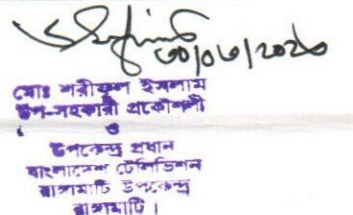 ৩০/০৬/২০২০
মোঃ শরীফুল ইসলাম
উপ-সহকারী প্রকৌশলী
ও
উপকেন্দ্র প্রধান
বাংলাদেশ টেলিভিশন
রাঙ্গামাটি উপকেন্দ্র
রাঙ্গামাটি।